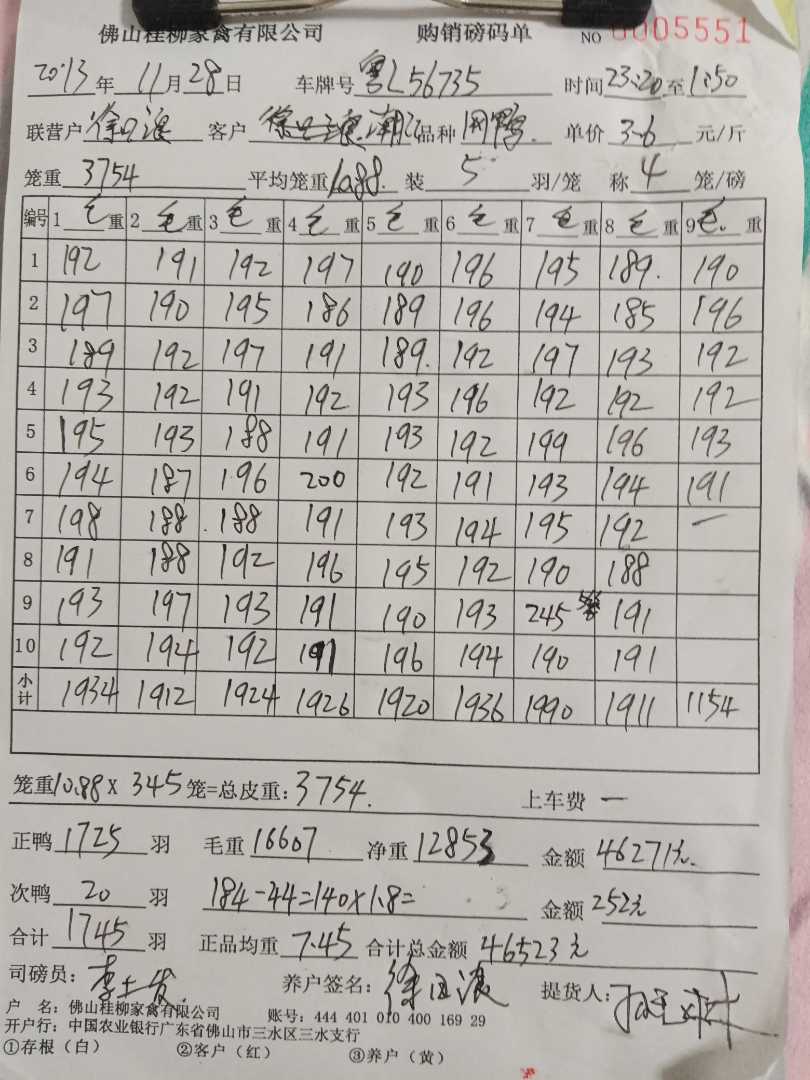 佛山桂柳家禽有限公司 购销磅码单 NO 0005551
2013年 11月28日 车牌号 粤L56735 时间23:20至1:50
联营户 徐 客户 徐 品种 鸭 单价 3.6 元/斤
笼重 3754 平均笼重 10.88 装 5 羽/笼 称 4 笼/磅
编号 1 毛 重 2 毛 重 3 毛 重 4 毛 重 5 毛 重 6 毛 重 7 毛 重 8 毛 重 9 毛 重
1 192 191 192 197 190 196 195 189 190
2 197 190 195 186 189 196 194 185 196
3 189 192 197 191 189 192 197 193 192
4 193 192 191 192 193 196 192 192 192
5 195 193 188 191 193 192 199 196 193
6 194 187 196 200 192 191 193 194 191
7 198 188 188 191 193 194 195 192 一
8 191 188 192 196 195 192 190 188
9 193 197 193 191 190 193 245 191
10 192 194 192 191 196 194 190 191
小计 1934 1912 1924 1926 1920 1936 1990 1911 1154
笼重10.88 X 345 笼=总皮重:3754. 上车费 一
正鸭 1725 羽 毛重 16607 净重 12853 金额 46271元.
次鸭 20 羽 184-44=140×1.8= 金额 252元
合计 1745 羽 正品均重 7.45 合计总金额 46523元
司磅员: 李 养户签名: 徐 提货人:
户 名: 佛山桂柳家禽有限公司 账号: 444 401 010 400 169 29
开户行: 中国农业银行广东省佛山市三水区三水支行
①存根(白) ②客户(红) ③养户(黄)